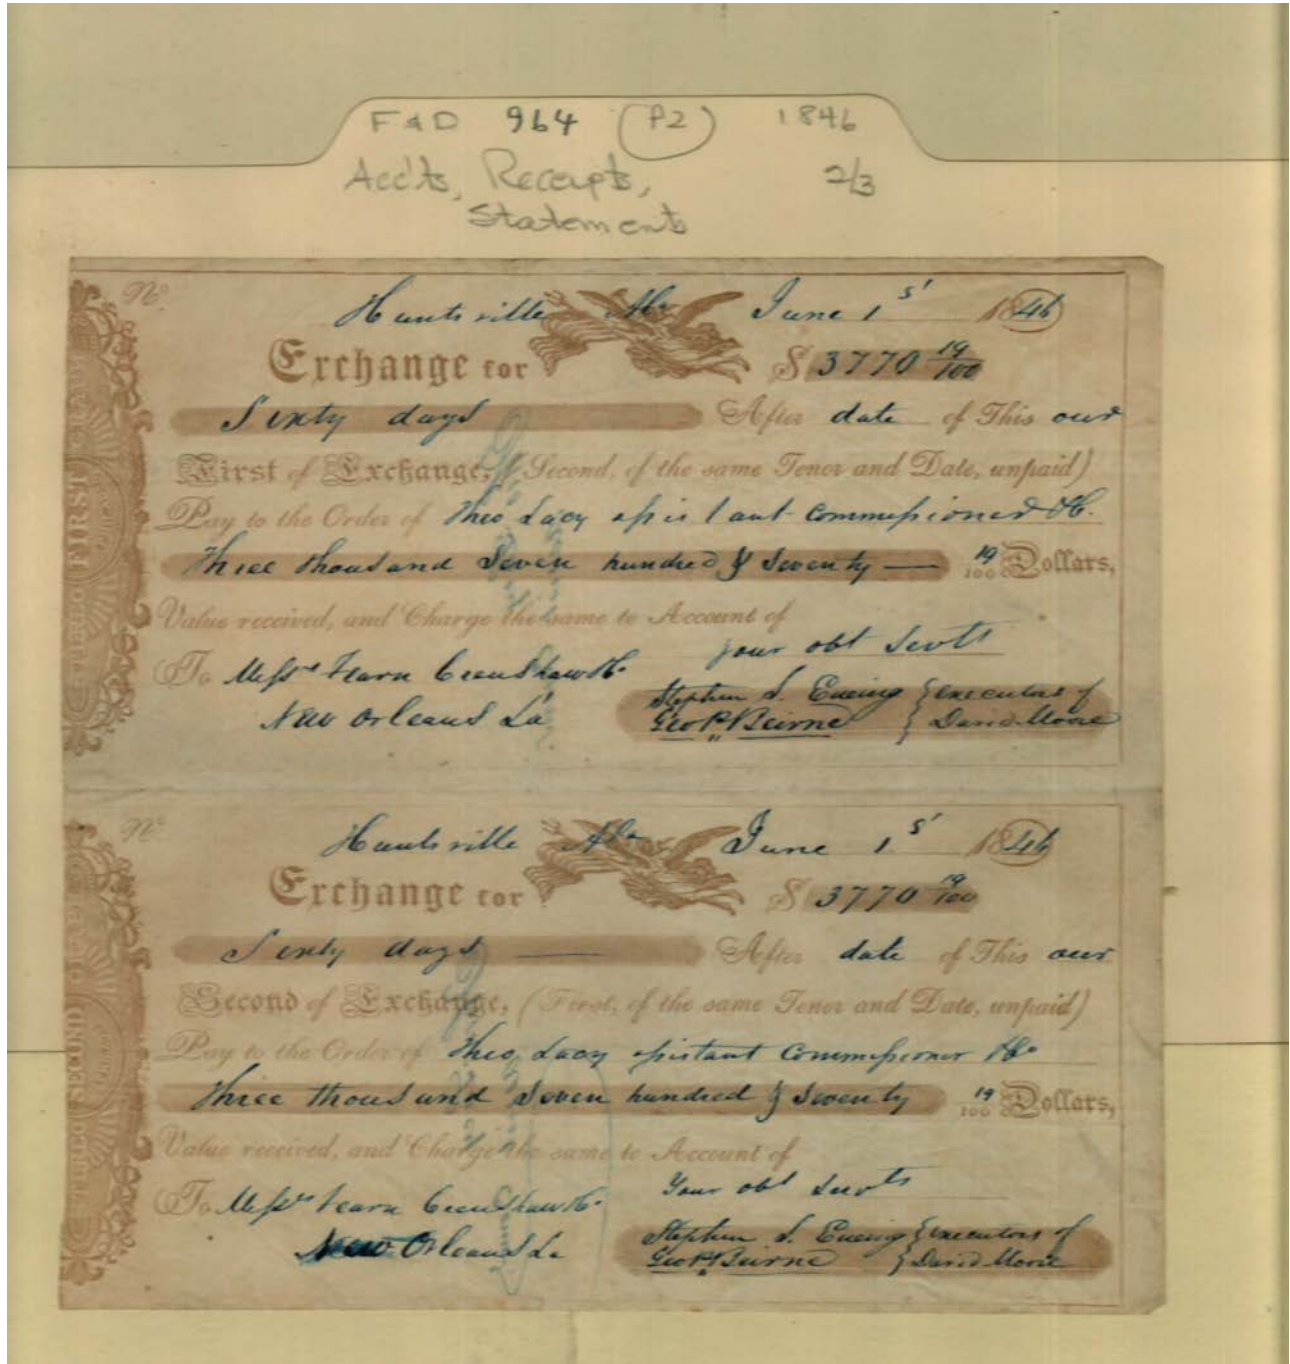 F & D 964 (P2) 1846
Acc'ts, Receipts, 2/3
Statements
No. Huntsville Ala June 1st 1846
Exchange for $ 3770 19/100
Sixty days After date of This our
First of Exchange, (Second, of the same Tenor and Date, unpaid)
Pay to the Order of Theo Lacy assistant Commissioner &c.
Three thousand Seven hundred & Seventy — 19/100 Dollars,
Value received, and Charge the same to Account of
your obt Servts
To Messrs Fearn Crenshaw & Co
Stephen S. Ewing } executors of
New Orleans La
Geo P. Beirne } David Moore
FIRST
No. Huntsville Ala June 1st 1846
Exchange for $ 3770 19/100
Sixty days — After date of This our
Second of Exchange, (First, of the same Tenor and Date, unpaid)
Pay to the Order of Theo Lacy assistant Commissioner &c
Three thousand Seven hundred & Seventy 19/100 Dollars,
Value received, and Charge the same to Account of
Your obt Servts
To Messrs Fearn Crenshaw & Co
Stephen S. Ewing } executors of
New Orleans La
Geo P. Beirne } David Moore
SECOND